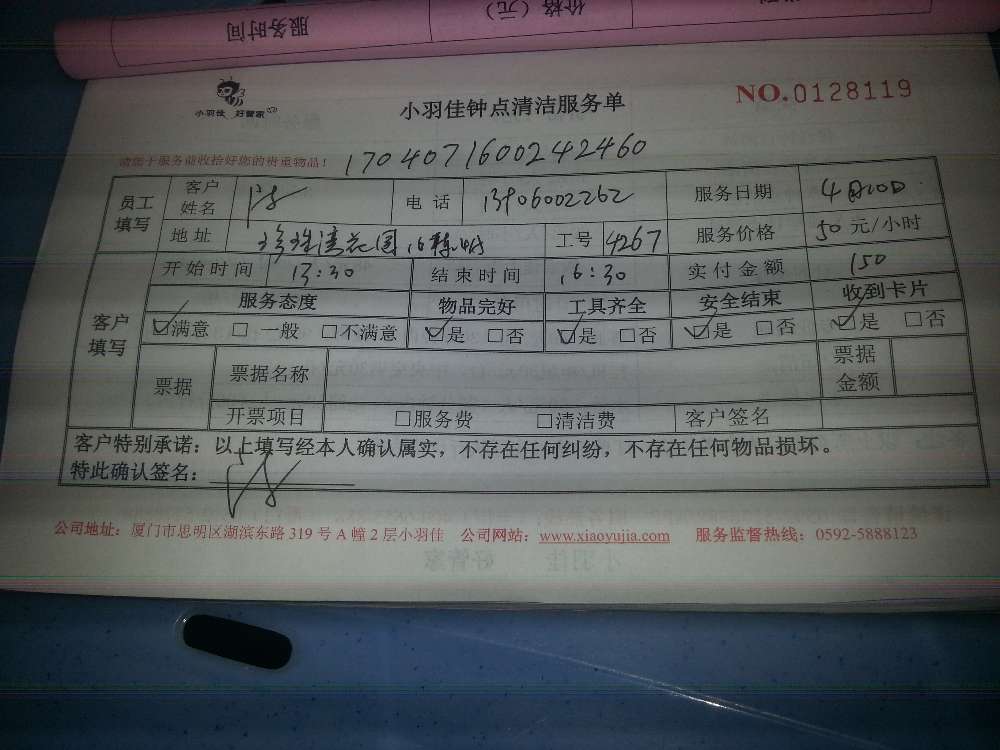 服务时间
价格（元）
小羽佳 好管家
小羽佳钟点清洁服务单
NO.0128119
请您于服务前收拾好您的贵重物品！
1704071600242460
员工填写
客户姓名
电话 13906002262
服务日期
地址 珍珠湾花园16栋
工号 4267
服务价格 50 元/小时
客户填写
开始时间 13:30
结束时间 16:30
实付金额 150
服务态度 物品完好 工具齐全 安全结束 收到卡片
☑满意 □ 一般 □不满意 ☑是 □否 ☑是 □否 ☑是 □否 ☑是 □否
票据 票据名称 票据金额
开票项目 □服务费 □清洁费 客户签名
客户特别承诺：以上填写经本人确认属实，不存在任何纠纷，不存在任何物品损坏。
特此确认签名：
公司地址：厦门市思明区湖滨东路 319 号 A 幢 2 层小羽佳 公司网站：www.xiaoyujia.com 服务监督热线：0592-5888123
小羽佳 好管家